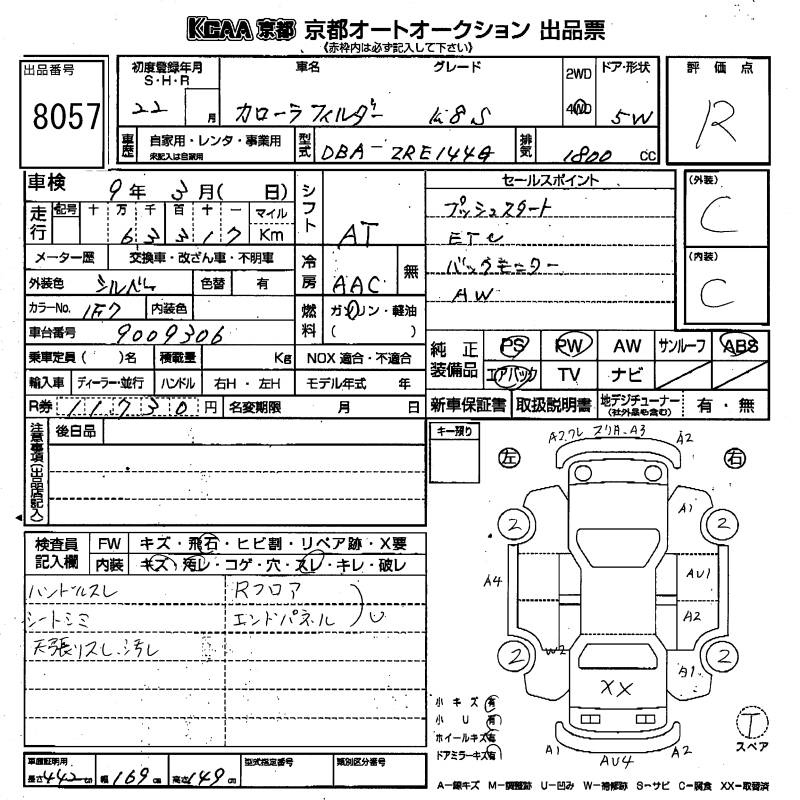 KCAA 京都 京都オートオークション 出品票
《赤枠内は必ず記入して下さい》
出品番号
8057
初度登録年月
S・H・R
22 月
車名
カローラフィルダー
グレード
1.8S
2WD
4WD
ドア・形状
5W
評価点
R
車歴
自家用・レンタ・事業用
未記入は自家用
型式
DBA-ZRE144G
排気
1800 cc
車検
9年3月( 日)
走行
記号 十 万 千 百 十 一 マイル
6 3 3 1 7 Km
メーター歴
交換車・改ざん車・不明車
外装色
シルバー
色替 有
カラーNo.
1F7
内装色
車台番号
9009306
乗車定員( )名
積載量 Kg
輸入車
ディーラー・並行
ハンドル
右H・左H
R券
11730円
名変期限 月 日
シフト
AT
冷房
AAC
無
燃料
ガソリン・軽油
( )
NOX 適合・不適合
モデル年式 年
セールスポイント
プッシュスタート
ETC
バックモニター
AW
(外装)
C
(内装)
C
純正装備品
PS PW AW サンルーフ ABS
エアバック TV ナビ
新車保証書
取扱説明書
地デジチューナー
(社外品も含む)
有・無
注意事項(出品店記入)
後日品
検査員記入欄
FW
キズ・飛石・ヒビ割・リペア跡・X要
内装
キズ・汚レ・コゲ・穴・スレ・キレ・破レ
ハンドルスレ
シートシミ
天張リスレ、汚レ
Rフロア
エンドパネル
)U
キー残り
A2,ワレ ズリ有、A3
A2
左
右
2
2
A1
A4
AU1
A2
W2
2
2
A1
XX
A1
AU4
A2
小キズ 有
小U 有
ホイールキズ 有
ドアミラーキズ 有
T
スペア
車庫証明用
長さ 442 cm
幅 169 cm
高さ 149 cm
型式指定番号
類別区分番号
A―線キズ M―調整跡 U―凹み W―補修跡 S―サビ C―腐食 XX―取替済